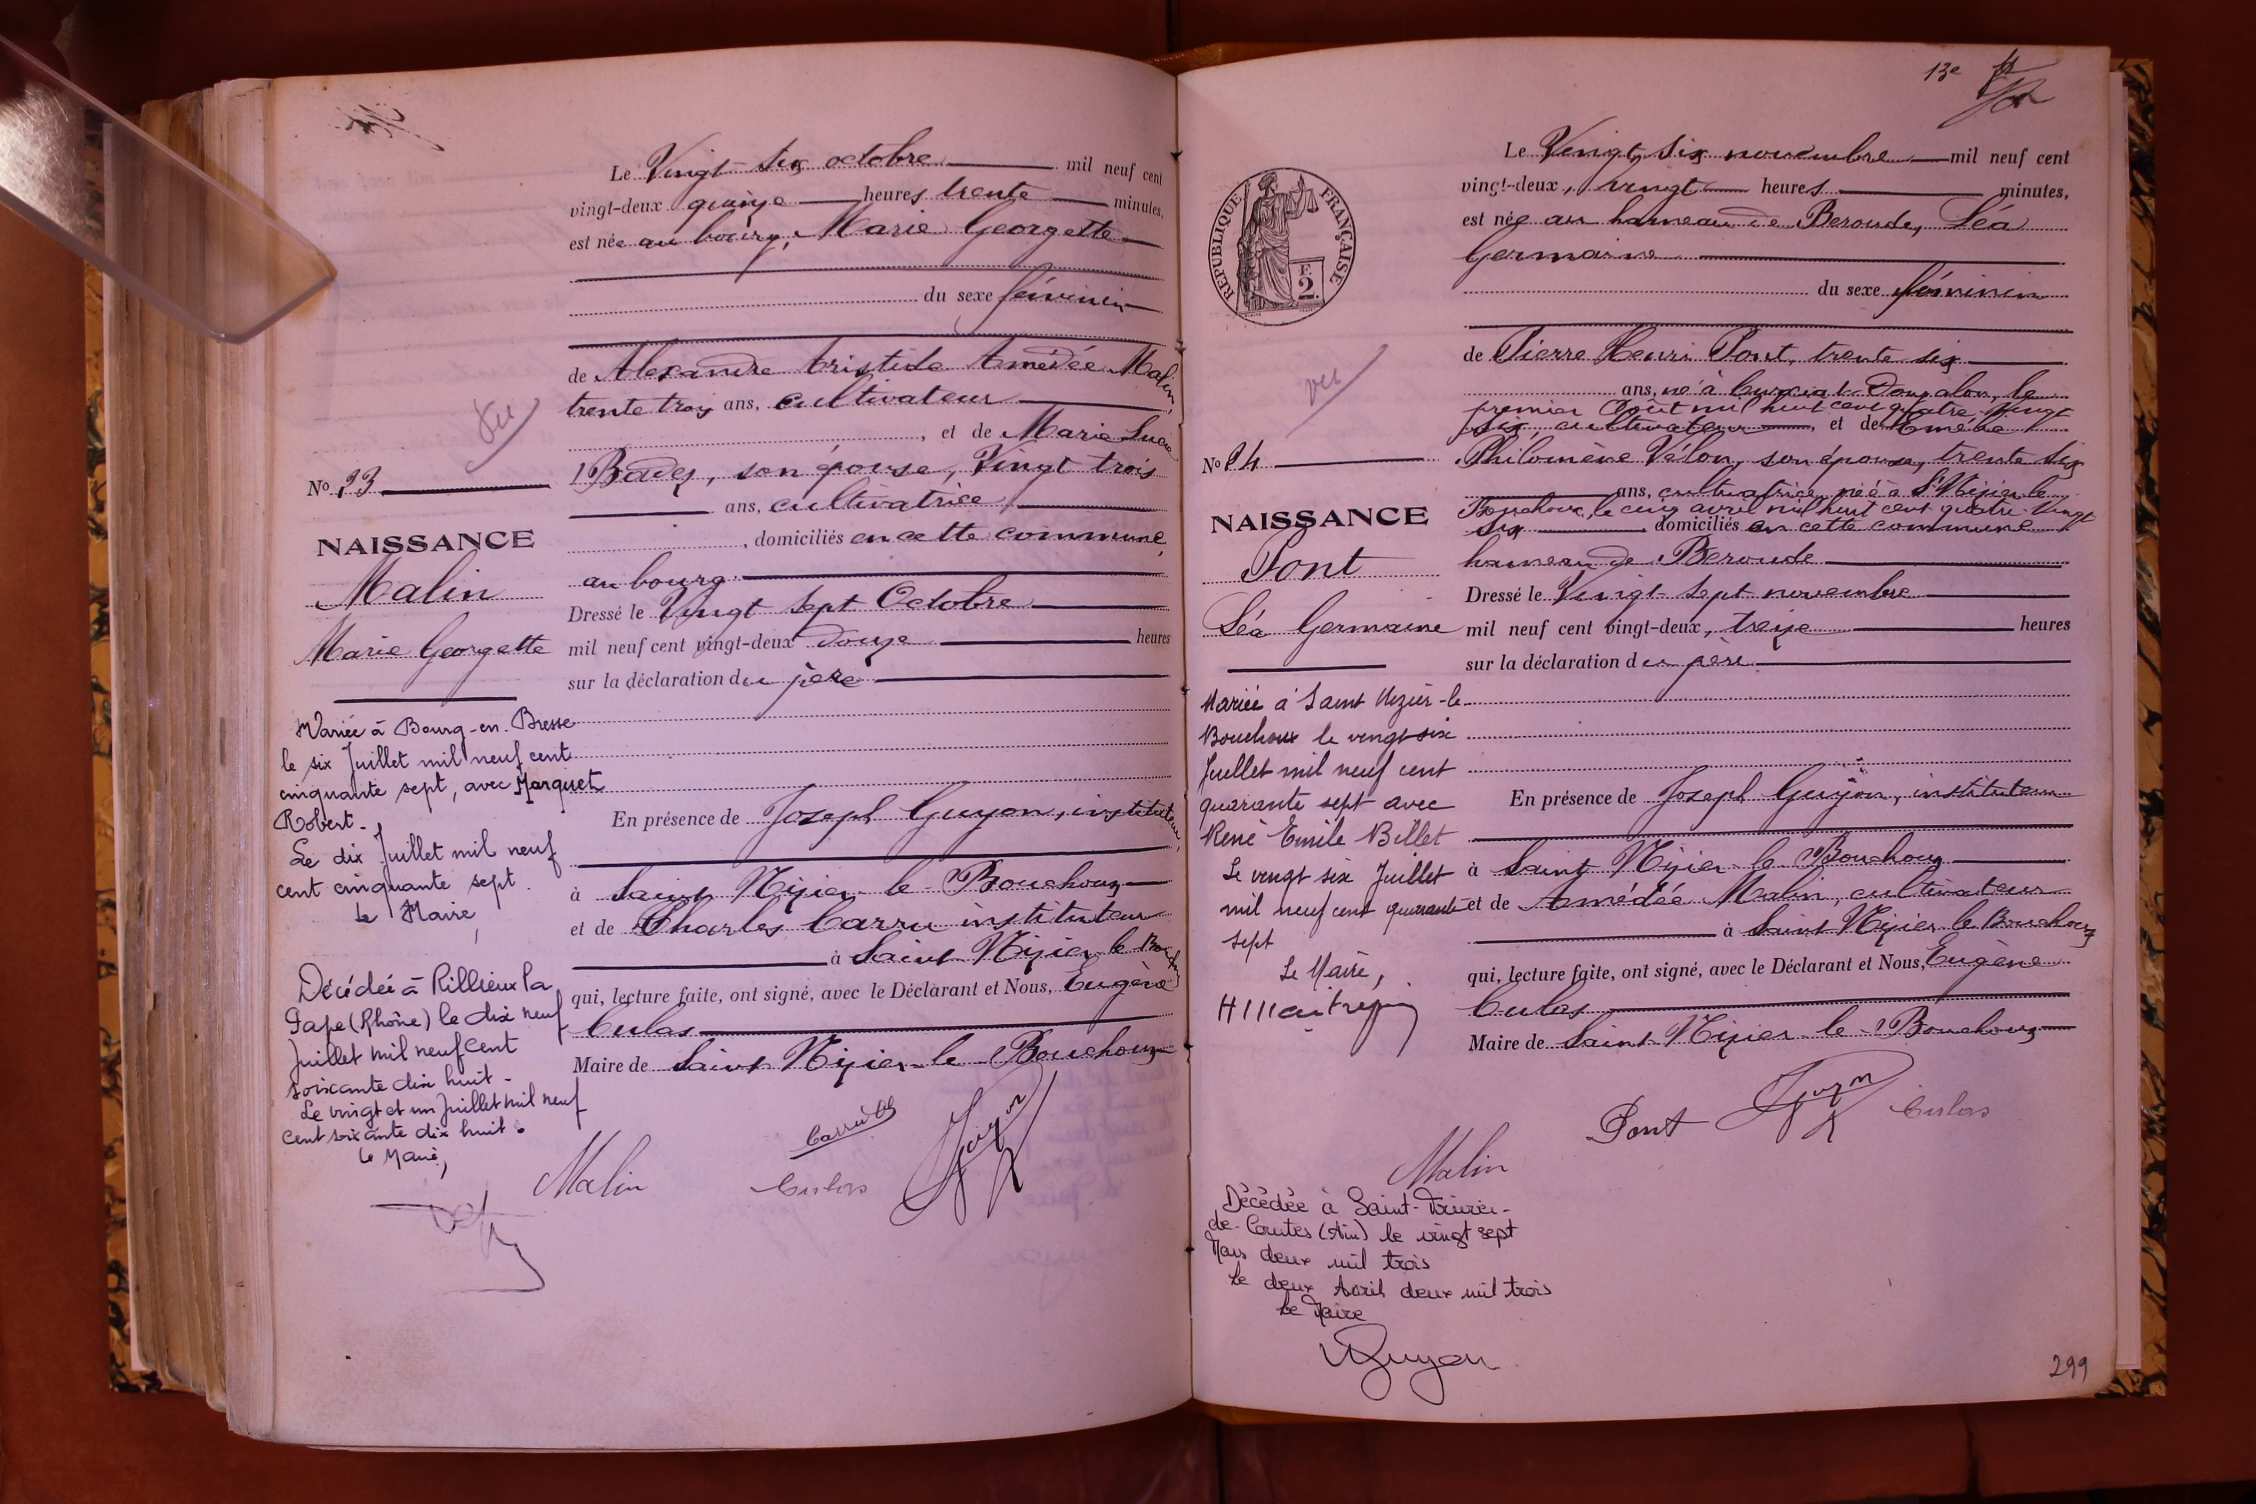 Le Vingt six octobre mil neuf cent
vingt-deux quinze heures trente minutes,
est née au bourg, Marie Georgette
du sexe féminin
de Alexandre Aristide Amédée Malin,
trente trois ans, cultivateur
, et de Marie
son épouse, Vingt trois
ans, cultivatrice
, domiciliés en cette commune,
au bourg.
Dressé le Vingt sept Octobre
mil neuf cent vingt-deux douze heures
sur la déclaration du père
En présence de Joseph Guyon, instituteur,
à Saint Nizier-le-Bouchoux
et de Charles Carru instituteur
à Saint Nizier le Bouchoux
qui, lecture faite, ont signé, avec le Déclarant et Nous, Eugène
Culas
Maire de Saint Nizier-le-Bouchoux
vu
No 23
NAISSANCE
Malin
Marie Georgette
Mariée à Bourg-en-Bresse
le six Juillet mil neuf cent
cinquante sept, avec Marquet
Robert.
Le dix Juillet mil neuf
cent cinquante sept.
Le Maire,
Décédée à Rillieux la
Pape (Rhône) le dix neuf
Juillet mil neuf cent
soixante dix huit.
Le vingt et un Juillet mil neuf
cent soixante dix huit.
Le Maire,
Malin
Culas
13e
Le Vingt six novembre mil neuf cent
vingt-deux, vingt heures minutes,
est née au hameau de Beroude, Léa
Germaine
du sexe féminin
de Pierre Henri Pont, trente six
ans, né à Curciat-Dongalon, le
premier Août mil huit cent quatre vingt
six, cultivateur, et de
Philomène Vélon, son épouse, trente six
ans, cultivatrice née à St Nizier le
Bouchoux, le cinq avril mil huit cent quatre-Vingt
six domiciliés en cette commune
hameau de Beroude
Dressé le Vingt-sept novembre
mil neuf cent vingt-deux, treize heures
sur la déclaration du père
En présence de Joseph Guyon, instituteur
à Saint Nizier-le-Bouchoux
et de Amédée Malin, cultivateur
à Saint Nizier le Bouchoux
qui, lecture faite, ont signé, avec le Déclarant et Nous, Eugène
Culas
Maire de Saint Nizier-le-Bouchoux
RÉPUBLIQUE FRANÇAISE
F.
2.
vu
No 24
NAISSANCE
Pont
Léa Germaine
Mariée à Saint Nizier-le-
Bouchoux le vingt-six
Juillet mil neuf cent
quarante sept avec
René Emile Billet
Le vingt six Juillet
mil neuf cent quarante
sept
Le Maire,
Malin
Pont
Guyon
Culas
Décédée à Saint-Trivier-
de-Courtes (Ain) le vingt sept
Mars deux mil trois
Le deux Avril deux mil trois
Le Maire
Guyon
299